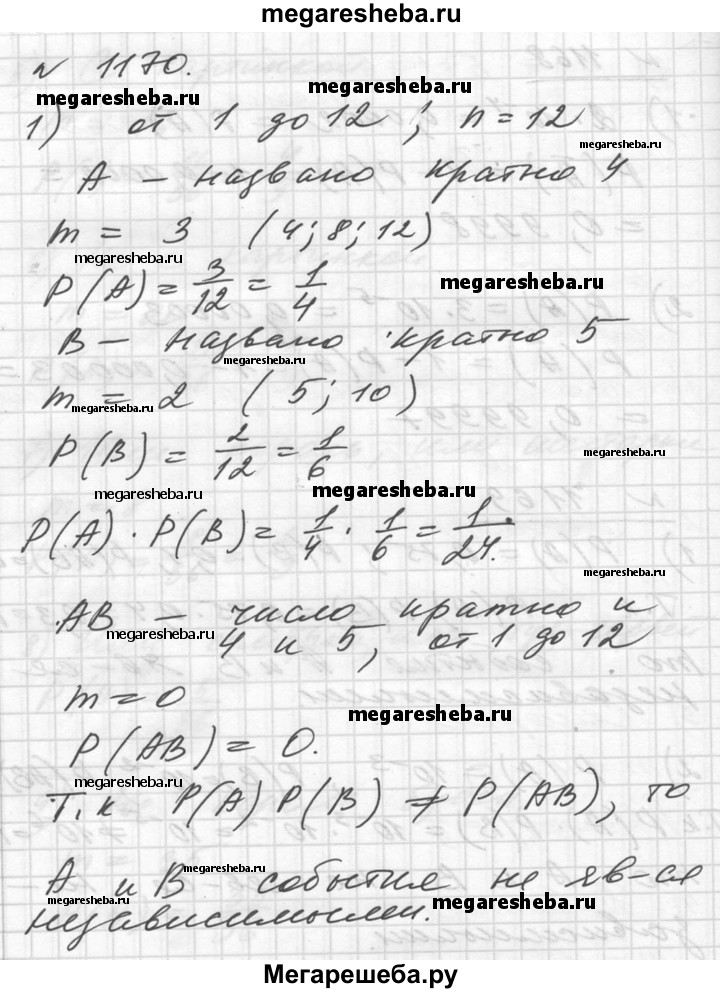 megaresheba.ru
№ 1170.
megaresheba.ru
1) от 1 до 12 ; n = 12
megaresheba.ru
A – названо кратно 4
m = 3 (4; 8; 12)
megaresheba.ru
P(A) = 3/12 = 1/4
megaresheba.ru
B – названо кратно 5
megaresheba.ru
m = 2 (5; 10)
megaresheba.ru
P(B) = 2/12 = 1/6
megaresheba.ru
megaresheba.ru
megaresheba.ru
P(A) · P(B) = 1/4 · 1/6 = 1/24.
megaresheba.ru
AB – число кратно и
megaresheba.ru
4 и 5, от 1 до 12
m = 0
megaresheba.ru
P(AB) = 0.
megaresheba.ru
Т.к P(A) P(B) ≠ P(AB), то
megaresheba.ru
A и B события не яв-ся
megaresheba.ru
независимыми.
Мегарешеба.ру